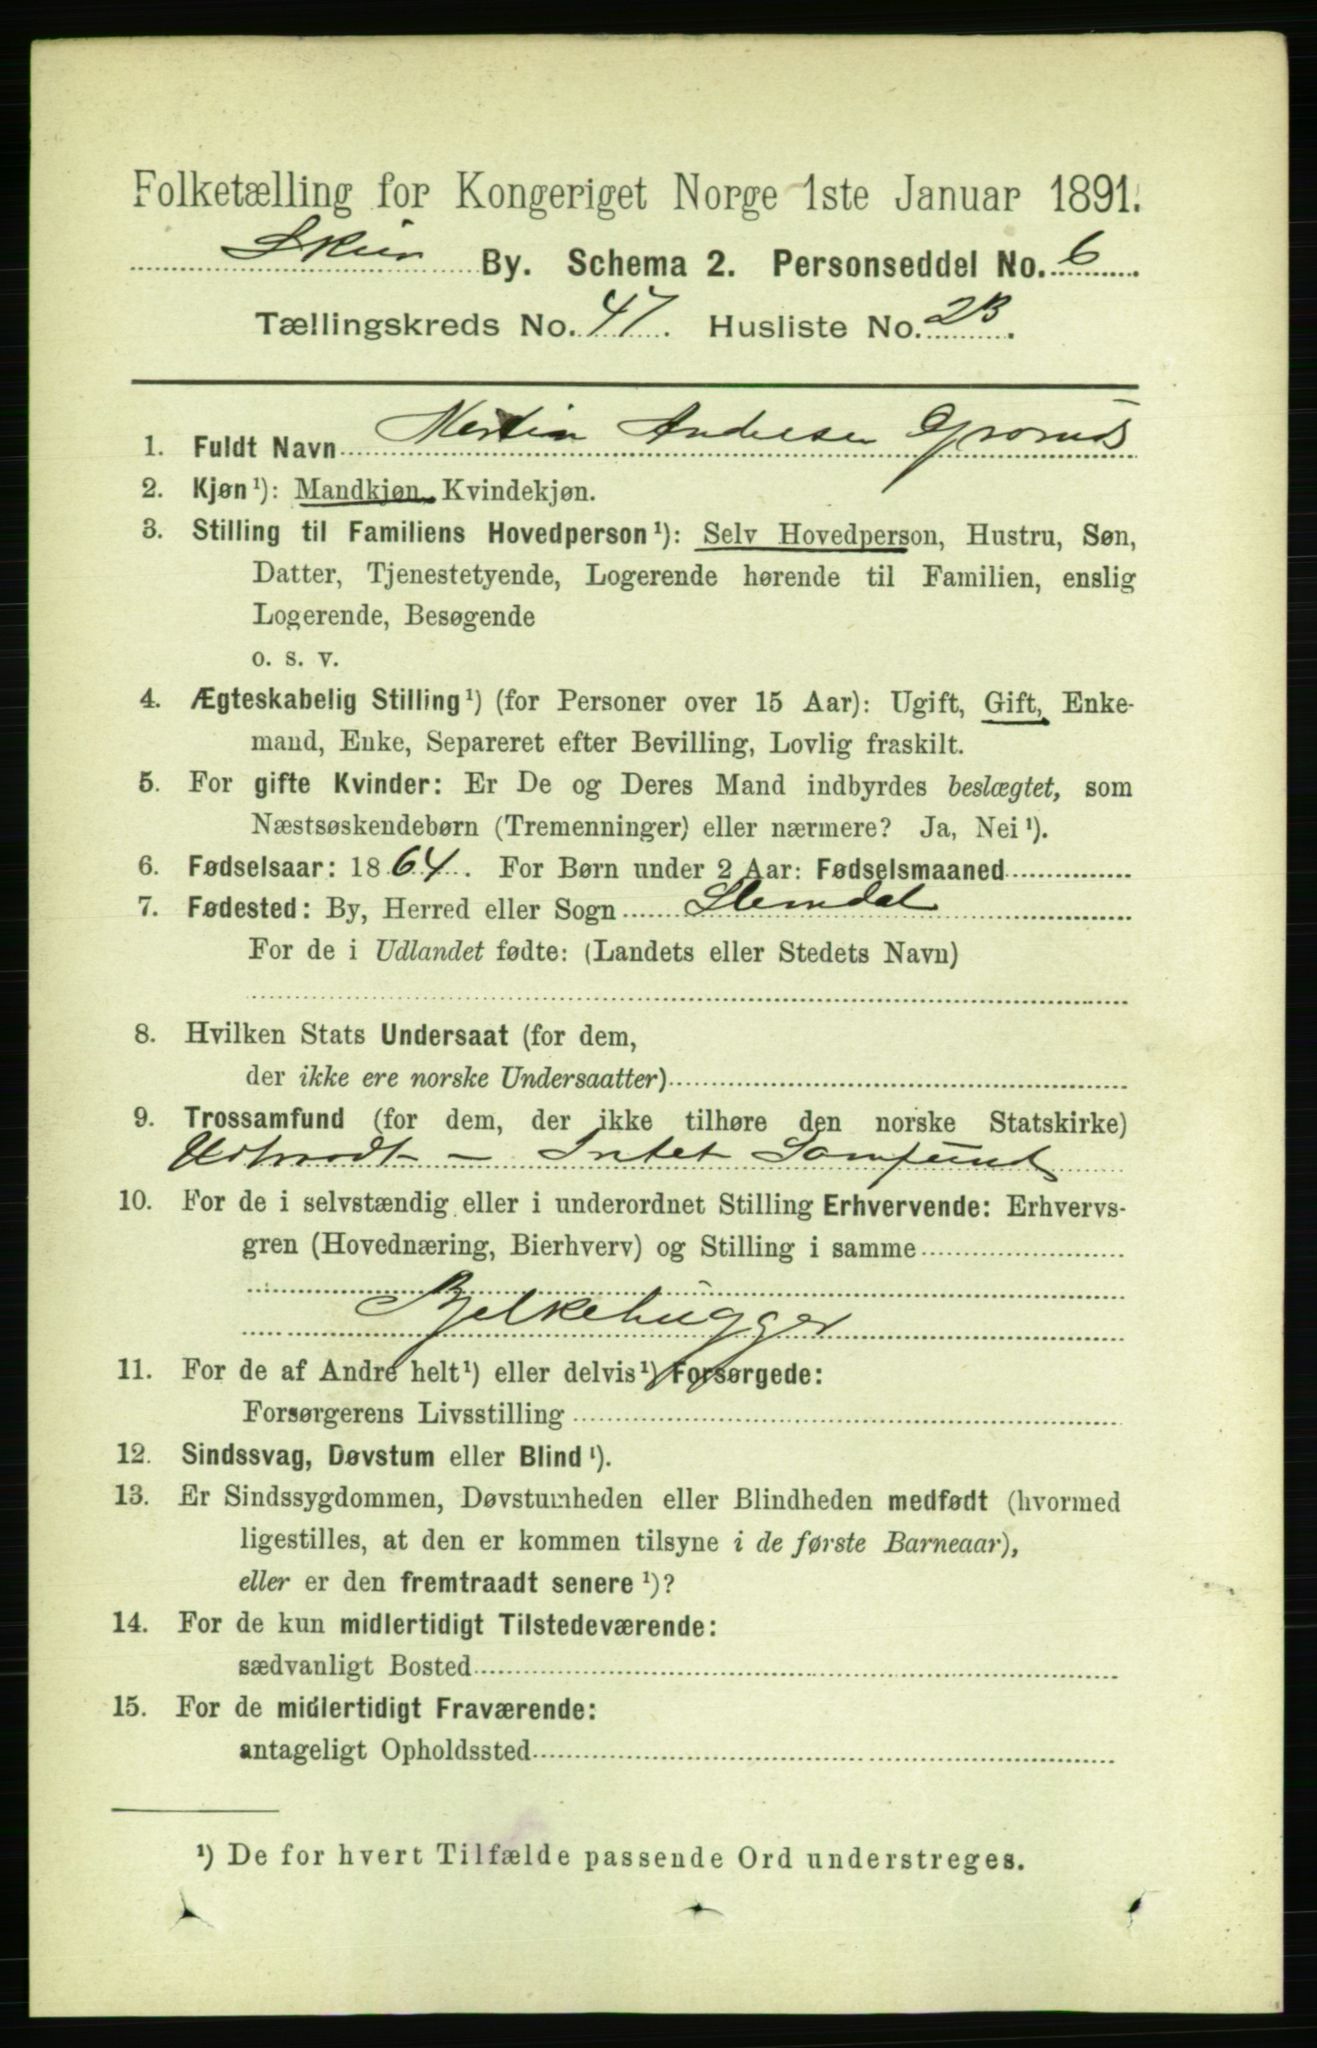 Folketælling for Kongeriget Norge 1ste Januar 1891.
Skien By. Schema 2. Personseddel No. 6
Tællingskreds No. 47. Husliste No. 2B.
1. Fuldt Navn Martin Andersen Grorud
2. Kjøn¹): Mandkjøn, Kvindekjøn.
3. Stilling til Familiens Hovedperson¹): Selv Hovedperson, Hustru, Søn,
Datter, Tjenestetyende, Logerende hørende til Familien, enslig
Logerende, Besøgende
o. s. v.
4. Ægteskabelig Stilling¹) (for Personer over 15 Aar): Ugift, Gift, Enke-
mand, Enke, Separeret efter Bevilling, Lovlig fraskilt.
5. For gifte Kvinder: Er De og Deres Mand indbyrdes beslægtet, som
Næstsøskendebørn (Tremenninger) eller nærmere? Ja, Nei¹).
6. Fødselsaar: 1864. For Børn under 2 Aar: Fødselsmaaned
7. Fødested: By, Herred eller Sogn Slemdal
For de i Udlandet fødte: (Landets eller Stedets Navn)
8. Hvilken Stats Undersaat (for dem,
der ikke ere norske Undersaatter)
9. Trossamfund (for dem, der ikke tilhøre den norske Statskirke)
Udtraadt - Intet Samfund
10. For de i selvstændig eller i underordnet Stilling Erhvervende: Erhvervs-
gren (Hovednæring, Bierhverv) og Stilling i samme
Bjelkehugger
11. For de af Andre helt¹) eller delvis¹) Forsørgede:
Forsørgerens Livsstilling
12. Sindssvag, Døvstum eller Blind¹).
13. Er Sindssygdommen, Døvstumheden eller Blindheden medfødt (hvormed
ligestilles, at den er kommen tilsyne i de første Barneaar),
eller er den fremtraadt senere¹)?
14. For de kun midlertidigt Tilstedeværende:
sædvanligt Bosted
15. For de midlertidigt Fraværende:
antageligt Opholdssted
¹) De for hvert Tilfælde passende Ord understreges.